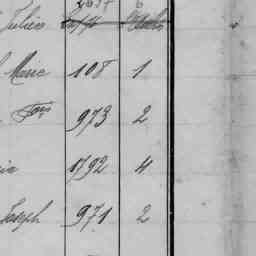 Julien
Marie 108 1
973 2
1792 4
Joseph 971 2